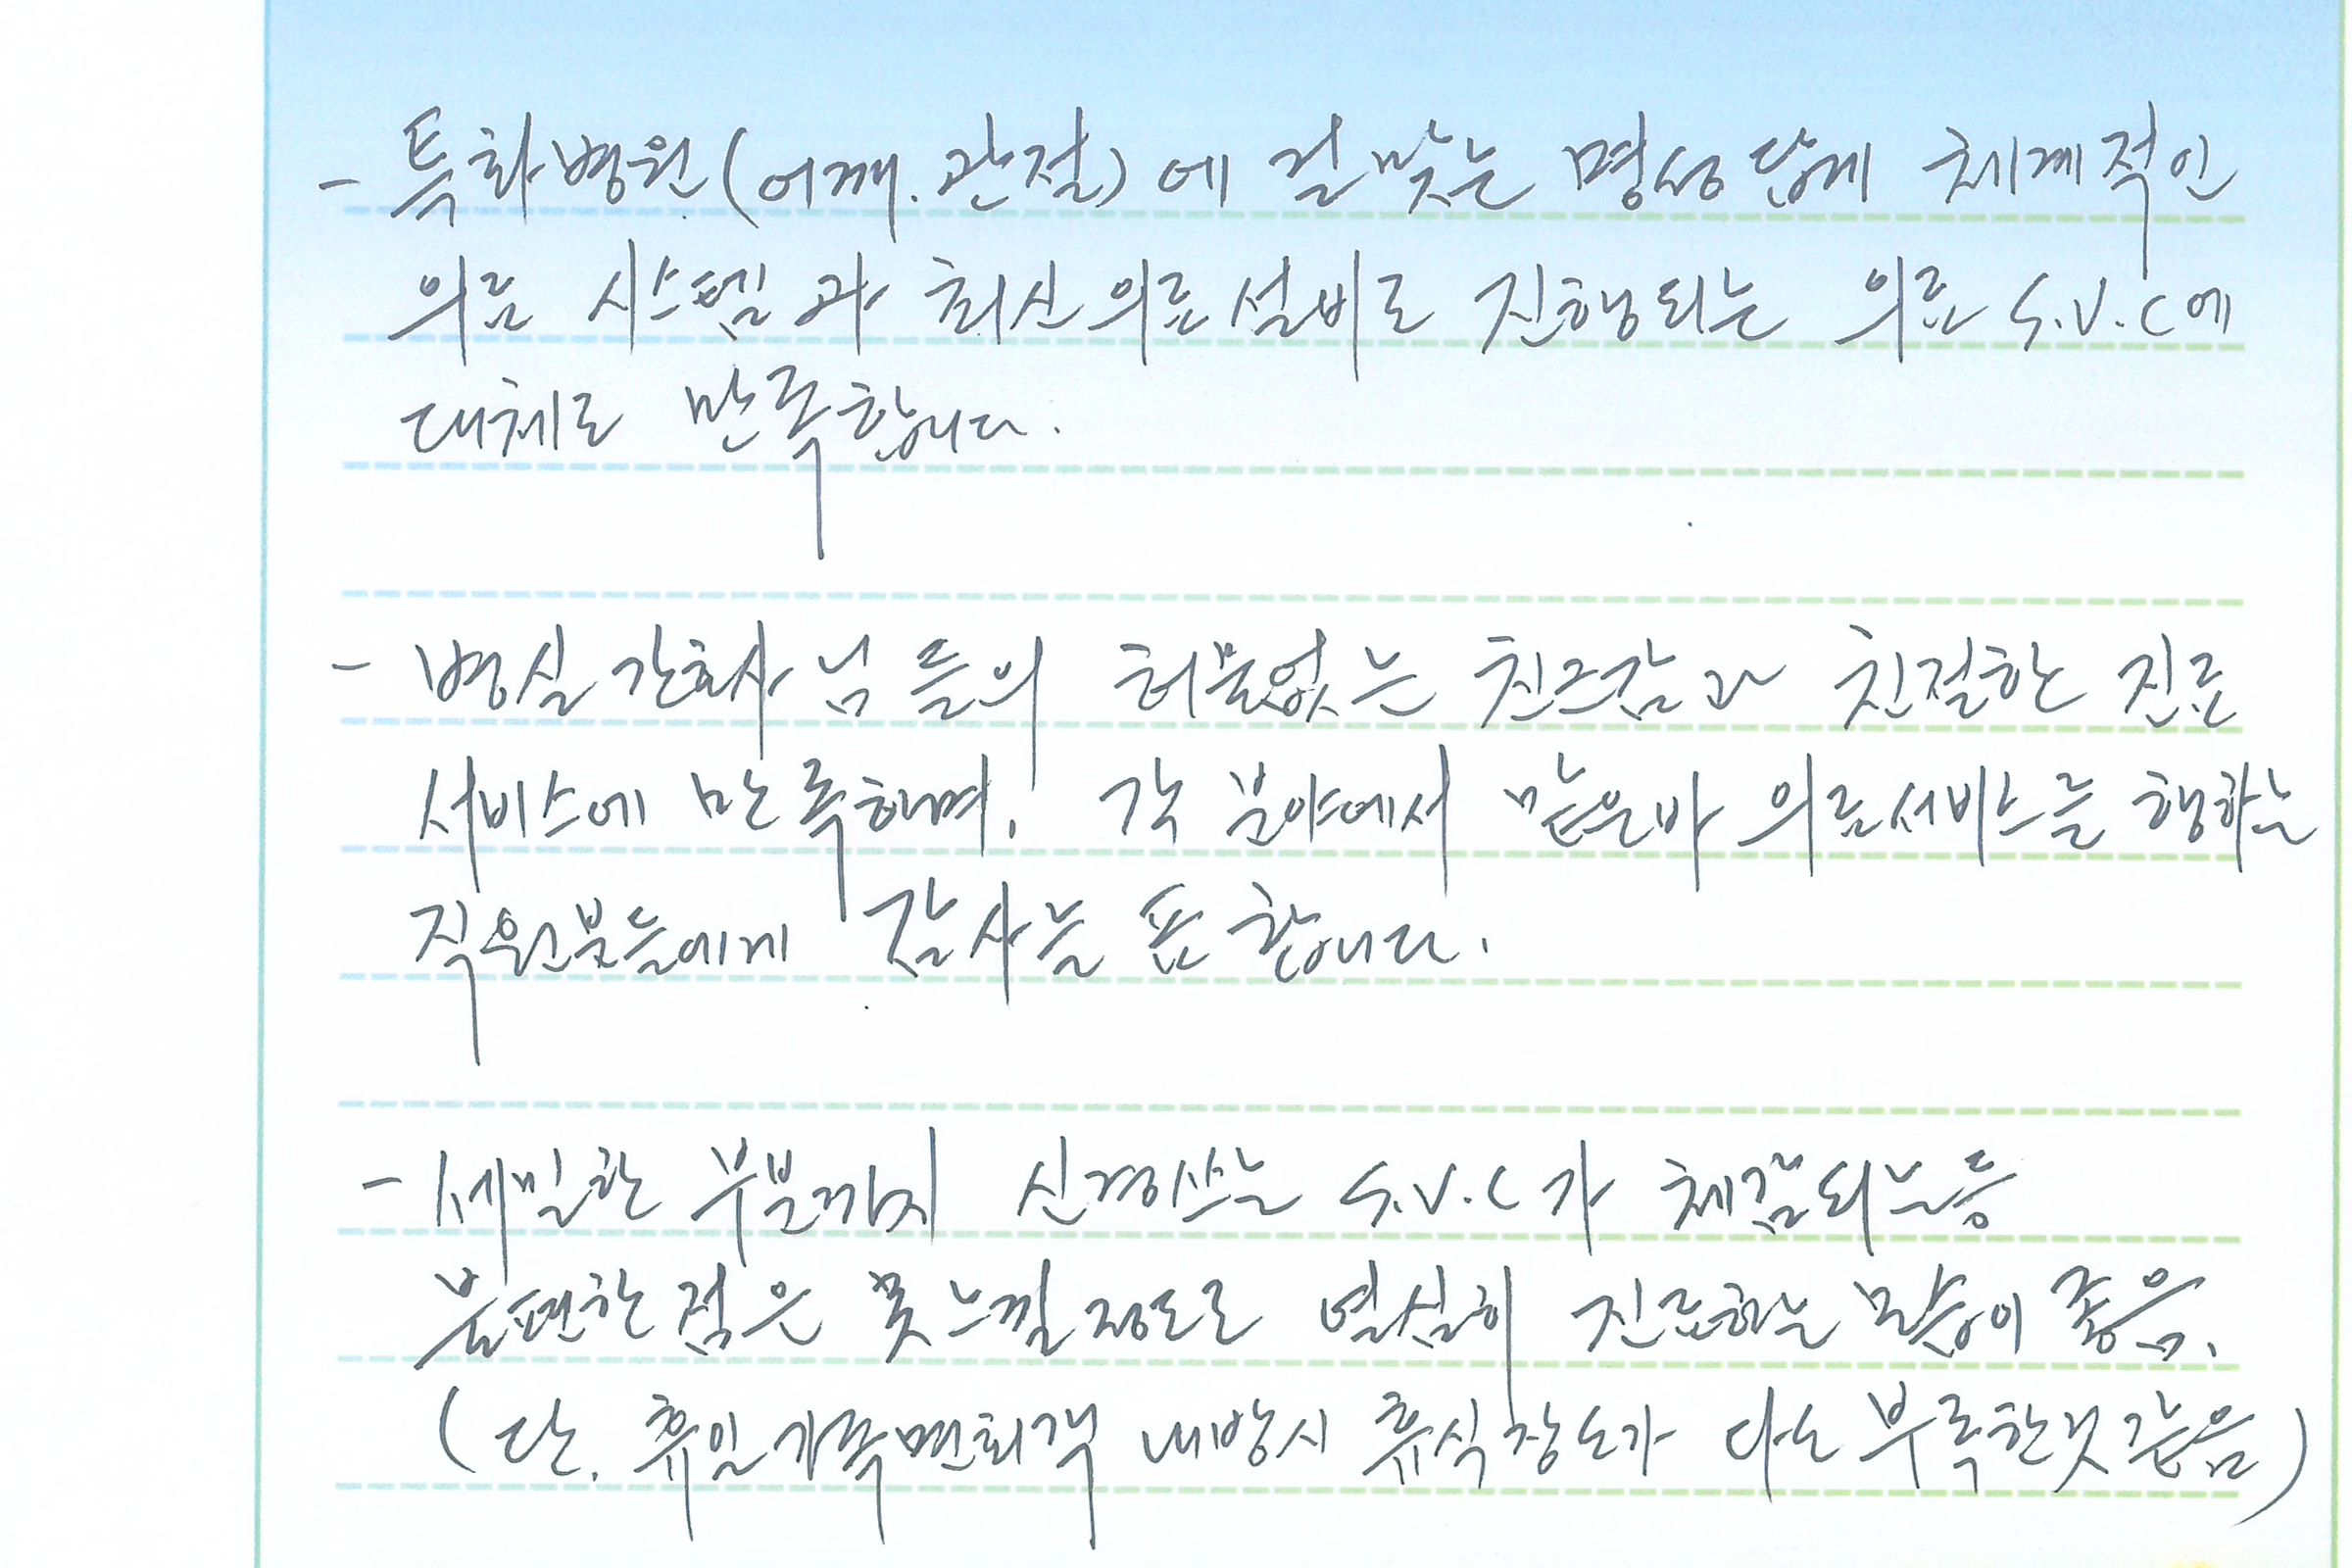 - 특화병원(어깨.관절)에 걸맞는 명성답게 체계적인
의료 시스템과 최신의료설비로 진행되는 의료 S.V.C에
대체로 만족합니다.
- 병실 간호사님들의 허물없는 친근감과 친절한 진료
서비스에 만족하며, 각 분야에서 맡은바 의료서비스를 행하는
직원분들에게 감사를 표합니다.
- 세밀한 부분까지 신경쓰는 S.V.C가 체감되는등
불편한 점은 못느낄 정도로 열심히 진료하는 모습이 좋음.
(단. 휴일 가족면회객 내방시 휴식장소가 다소 부족한것 같음)